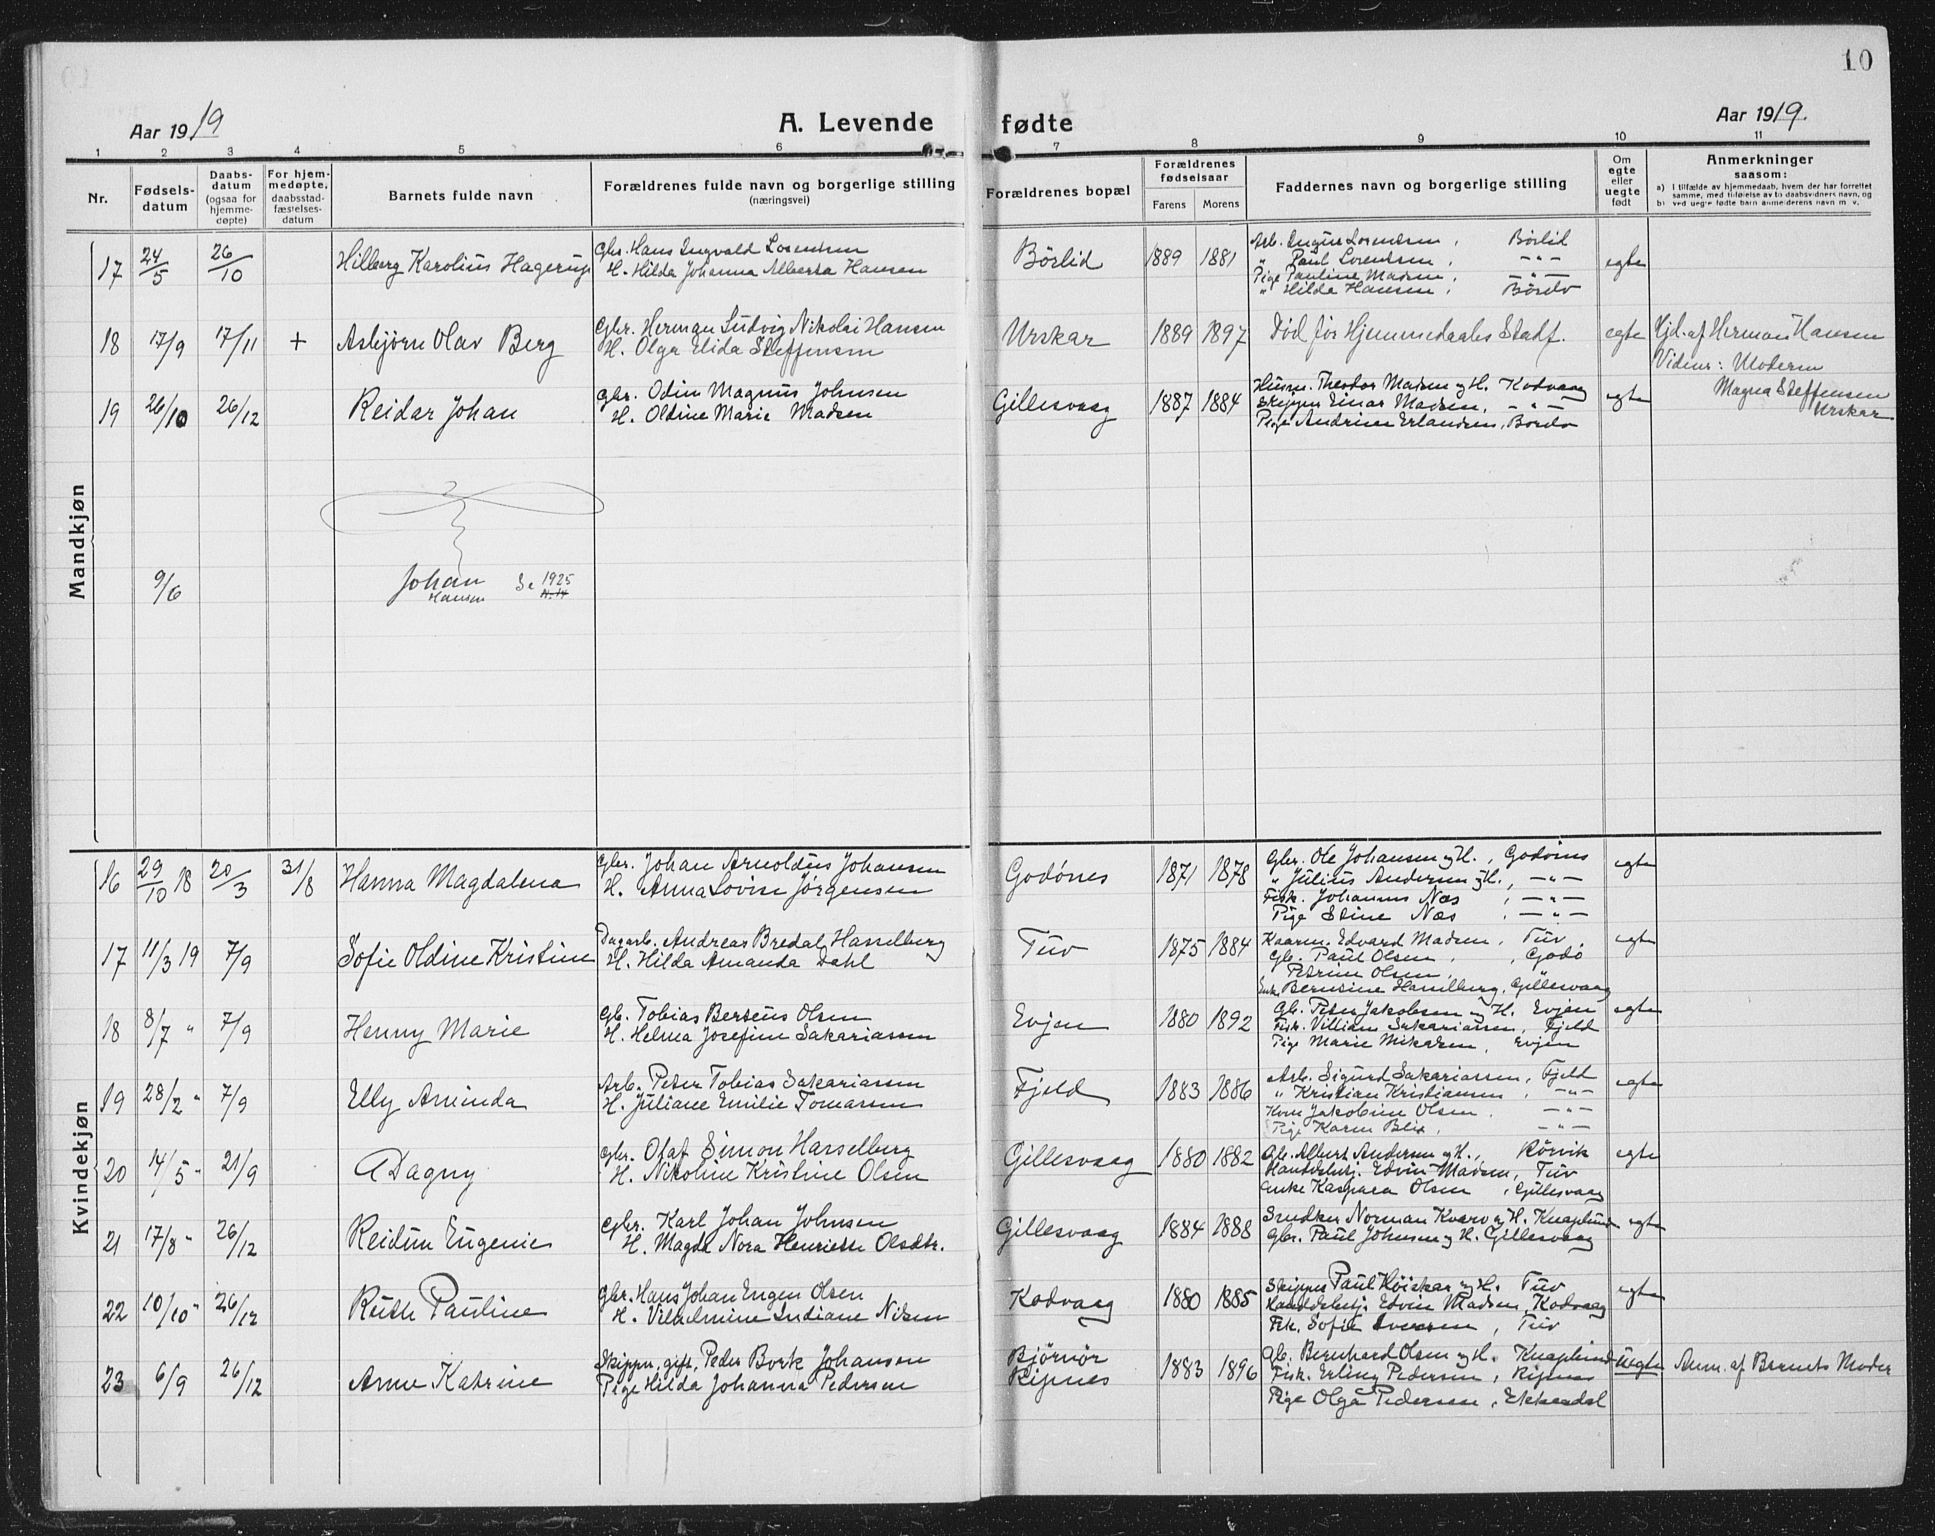 10
Aar 1919
A. Levende fødte
Aar 1919.
1 2 3 4 5 6 7 8 9 10 11
Nr.
Fødsels-
datum
Daabs-
datum
(ogsaa for
hjemme-
døpte)
For hjem-
medøpte,
daabsstad-
fæstelses-
datum
Barnets fulde navn
Forældrenes fulde navn og borgerlige stilling
(næringsvei)
Forældrenes bopæl
Forældrenes
fødselsaar
Farens Morens
Faddernes navn og borgerlige stilling
Om
egte
eller
uegte
født
Anmerkninger
saasom:
a) I tilfælde av hjemmedaab, hvem der har forrettet
samme, med tilføielse av to daabsvidners navn, og
b) ved uegte fødte barn anmelderens navn m. v.
Mandkjøn
17 24/5 26/10 Hilberg Karolius Hagerup
Gbr. Hans Ingvald Lorentsen
H. Hilda Johanna Alberta Hansen
Børlid 1889 1881
Arb. Lorentsen, Børlid
" Paul Lorentsen, - " -
Pige Pauline Madsen, - " -
" Hilda Hansen,
egte
18 17/9 17/11 + Asbjørn Olav Berg
Gbr. Herman Ludvig Nikolai Hansen
H. Olga Elida Steffensen
Urskar 1889 1897 Død før Hjemmedaabs Stadf. egte
Hjd. af Herman Hansen
Vidner: Moderen
Magna Steffensen
Urskar
19 26/10 26/12 Reidar Johan
Gbr. Odin Magnus Johnsen
H. Oldine Marie Madsen
Gillesvaag 1887 1884
Husm. Theodor Madsen og H. Kodvaag
Skipper Einar Madsen, - " -
Pige Andrine Erlandsen,
egte
9/6 Johan Se 1925
Hansen N. 14
Kvindekjøn
16 29/10 18 20/3 31/8 Hanna Magdalena
Gbr. Johan Arnoldus Johansen
H. Anna Lovise Jørgensen
Godønes 1871 1878
Gbr. Ole Johansen og H., Godønes
" Julius Andersen og H., - " -
Fisk. Johannes Næs, - " -
Pige Stine Næs, - " -
egte
17 11/3 19 7/9 Sofie Oldine Kristine
Dagarb. Andreas Bredal Hasselberg
H. Hilda Amanda Dahl
Tuv 1875 1884
Edvard Madsen, Tuv
Gb. Paul Olsen, Godø
Petrine Olsen,
Enke Bernsine Hasselberg, Gillesvaag
egte
18 8/7 " 7/9 Henny Marie
Gb. Tobias Berteus Olsen
H. Helma Josefine Sakariassen
Evjen 1880 1892
Gb. Peter Jakobsen og H. Evjen
Fisk. Villiam Sakariassen, Fjeld
Pige Marie Mikalsen, Evjen
egte
19 28/2 " 7/9 Elly Aminda
Arb. Peter Tobias Sakariassen
H. Juliane Emilie Tomassen
Fjeld 1883 1886
Arb. Sigurd Sakariassen, Fjeld
" Kristian Kristiansen, - " -
Kone Jakobine Olsen, - " -
Pige Karen Blix, - " -
egte
20 14/5 " 21/9 Dagny
Gbr. Olaf Simon Hasselberg
H. Nikoline Kristine Olsen
Gillesvaag 1880 1882
Gb. Albert Andersen og H., Rørvik
Handelsbetj. Edvin Madsen, Tuv
Enke Kaspara Olsen, Gillesvaag
egte
21 17/8 " 26/12 Reidun Eugenie
Gbr. Karl Johan Johnsen
H. Magda Nora Henriette Olsdtr.
Gillesvaag 1884 1888
Snedker Norman Kvarv og H. Knaplund
Gbr. Paul Johnsen og H. Gillesvaag
egte
22 10/10 " 26/12 Ruth Pauline
Gbr. Hans Johan Engen Olsen
H. Vilhelmine Indiane Nilsen
Kodvaag 1880 1885
Skipper Paul Høiskar og H. Tuv
Handelsbetj. Edvin Madsen, Kodvaag
Frk. Sofie Iversen, Tuv
egte
23 6/9 26/12 Anne Katrine
Skipper, gift, Peder Bork Johansen
Pige Hilda Johanna Pedersen
Bjørnør
Ripnes
1883 1896
Gb. Bernhard Olsen og H. Knaplund
Fisk. Erling Pedersen, Ripnes
Pige Olga Pedersen,
uegte
Anm. af Barnets Moder